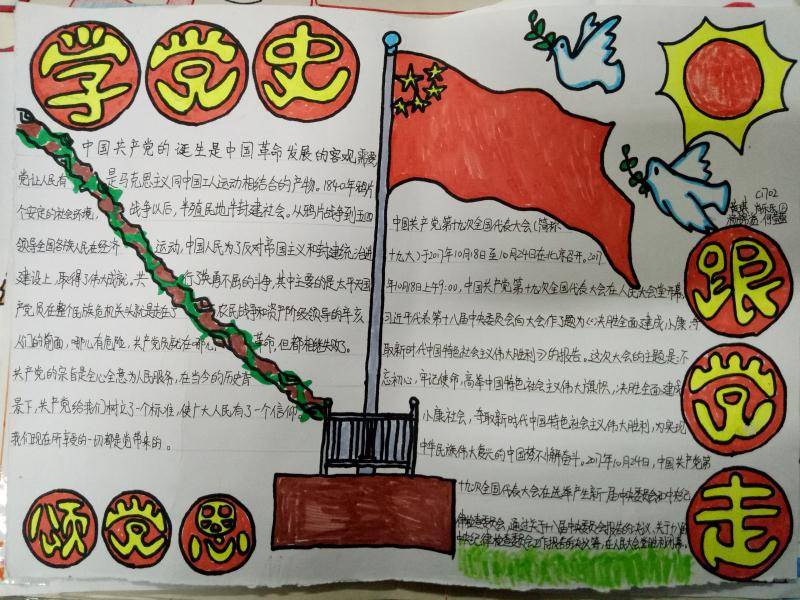 学党史
中国共产党的诞生是中国革命发展的客观需要
是马克思主义同中国工人运动相结合的产物。1840年鸦片
战争以后,半殖民地半封建社会。从鸦片战争到五四
运动,中国人民为了反对帝国主义和封建统治进
行了英勇不屈的斗争,其中主要的是太平天国
农民战争和资产阶级领导的辛亥
革命,但都相继失败了。
党让人民有
个安定的社会环境,
领导全国各族人民在经济
建设上,取得了伟大成就,共
产党员在整个民族危机关头就是走在了
人们的前面,哪儿有危险,共产党员就在哪儿,
共产党的宗旨是全心全意为人民服务,在当今的历史背
景下,共产党给我们树立了一个标准,使广大人民有了一个信仰,
我们现在所享受的一切都是党带来的。
颂党恩
C1702
中国共产党第十九次全国代表大会(简称
十九大)于2017年10月18日至10月24日在北京召开。2017
年10月18日上午9:00,中国共产党第十九次全国代表大会在人民大会堂开幕,
习近平代表第十八届中央委员会向大会作了题为《决胜全面建成小康,夺
取新时代中国特色社会主义伟大胜利》的报告。这次大会的主题是:不
忘初心,牢记使命,高举中国特色社会主义伟大旗帜,决胜全面建成
小康社会,夺取新时代中国特色社会主义伟大胜利,为实现
中华民族伟大复兴的中国梦不懈奋斗。2017年10月24日,中国共产党第
十九次全国代表大会在选举产生新一届中央委员会和中央纪
律检查委员会,通过关于十八届中央委员会报告的决议、关于十八届
中央纪律检查委员会工作报告的决议等,在人民大会堂胜利闭幕。
跟党走